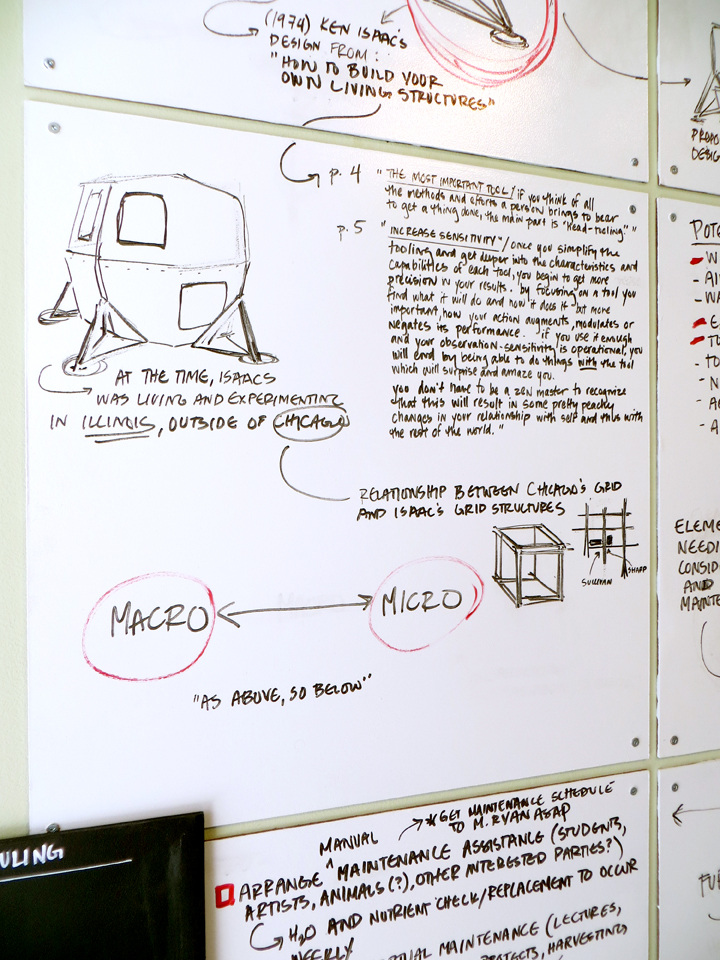 (1974) KEN ISAAC'S
DESIGN FROM:
"HOW TO BUILD YOUR
OWN LIVING STRUCTURES"
p. 4 "THE MOST IMPORTANT TOOL / if you think of all
the methods and efforts a person brings to bear
to get a thing done, the main part is "head-tooling.""
p. 5 "INCREASE SENSITIVITY" / once you simplify the
tooling and get deeper into the characteristics and
capabilities of each tool, you begin to get more
precision in your results. by focusing on a tool you
find what it will do and how it does it but more
important, how your action augments, modulates or
negates its performance. if you use it enough
and your observation-sensitivity is operational, you
will end by being able to do things with the tool
which will surprise and amaze you.
you don't have to be a zen master to recognize
that this will result in some pretty peachy
changes in your relationship with self and thus with
the rest of the world."
AT THE TIME, ISAACS
WAS LIVING AND EXPERIMENTING
IN ILLINOIS, OUTSIDE OF CHICAGO
RELATIONSHIP BETWEEN CHICAGO'S GRID
AND ISAAC'S GRID STRUCTURES
SULLIVAN
SHARP
MACRO
MICRO
"AS ABOVE, SO BELOW"
*GET MAINTENANCE SCHEDULE
TO M. RYAN ASAP
MANUAL
ARRANGE MAINTENANCE ASSISTANCE (STUDENTS,
ARTISTS, ANIMALS(?), OTHER INTERESTED PARTIES?)
H2O AND NUTRIENT CHECK/REPLACEMENT TO OCCUR
WEEKLY
MAINTENANCE (LECTURES,
HARVESTING
ULING
PROPO
DESIG
POTE
- W
- AI
- WA
- E
- TO
- TO
- N
- A
- A
ELEME
NEEDI
CONSID
AND
MAINTE
FU